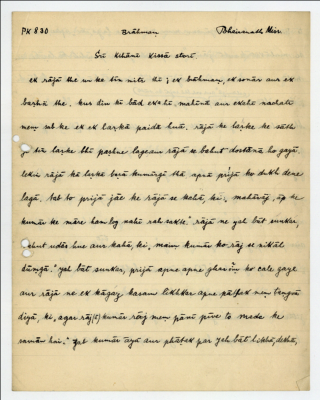 PK 830 Brāhman Bhewanath Misr
Srī Kihānī Kissā storī
ek rājā the unke tīn mītr thī; ek brāhman, ek sonār aur ek
barhaī the. kuch din ke bād ek hī mahīnā aur ek hī nachatr
mem sab ke ek ek larkā paidā huā. rājā ke larke ke sāth
ye tīn larke bhī parhne lage aur rājā se bahut dostānā ho gayā.
lekin rājā kā larkā barā kumārgī thā apne prijā ko dukh dene
lagā. tab to prijā jāe ke rājā se kahā, ki, mahārāj, āp ke
kumār ke māre ham log nahī rah sakte." rājā ne yah bāt sunkar,
bahut udās hue aur kahā, ki, maim kumār ko rāj se nikāl
dūmgā." yah bāt sunkar, prijā apne apne ghar ko cale gaye
aur rājā ne ek kāgaj kasam likhkar apne phātak mem tangwā
diyā, ki, "agar rāj(t) kumār rāj mem pānī pīve to made ke
samān hai." jab kumār āyā aur phātak par yah bāt likhā, dekhā,